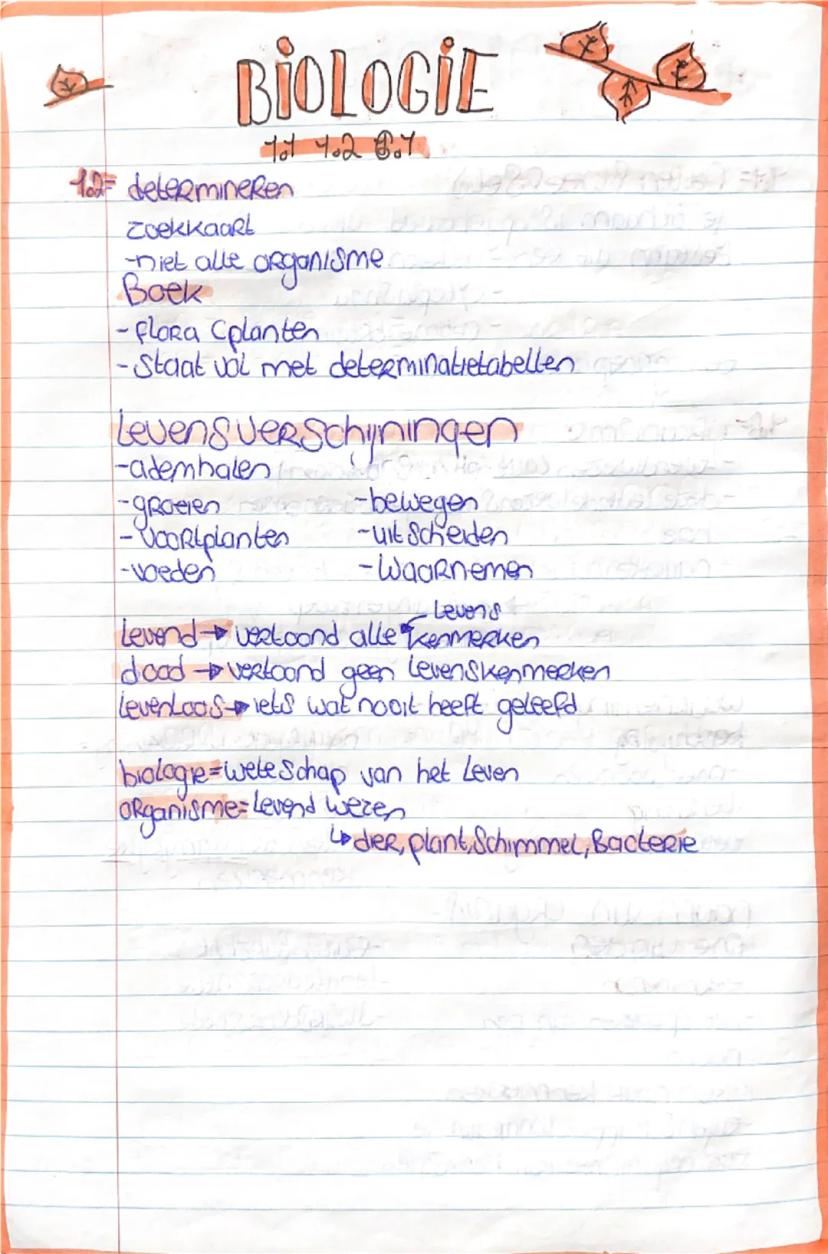 BIOLOGIE
1.1 1.2 6.1
1.2= determineren
zoekkaart
-niet alle organisme
Boek
- flora (planten
- Staat vol met determinatietabellen
Levensverschijningen
-ademhalen
-groeien -bewegen
- voortplanten -uitscheiden
-voeden -waarnemen
Levens
Levend → vertoond alle kenmerken
dood → vertoond geen Levenskenmerken
Levenloos → iets wat nooit heeft geleefd
biologie = weteschap van het Leven
organisme = Levend wezen
↳ dier, plant, Schimmel, Bacterie